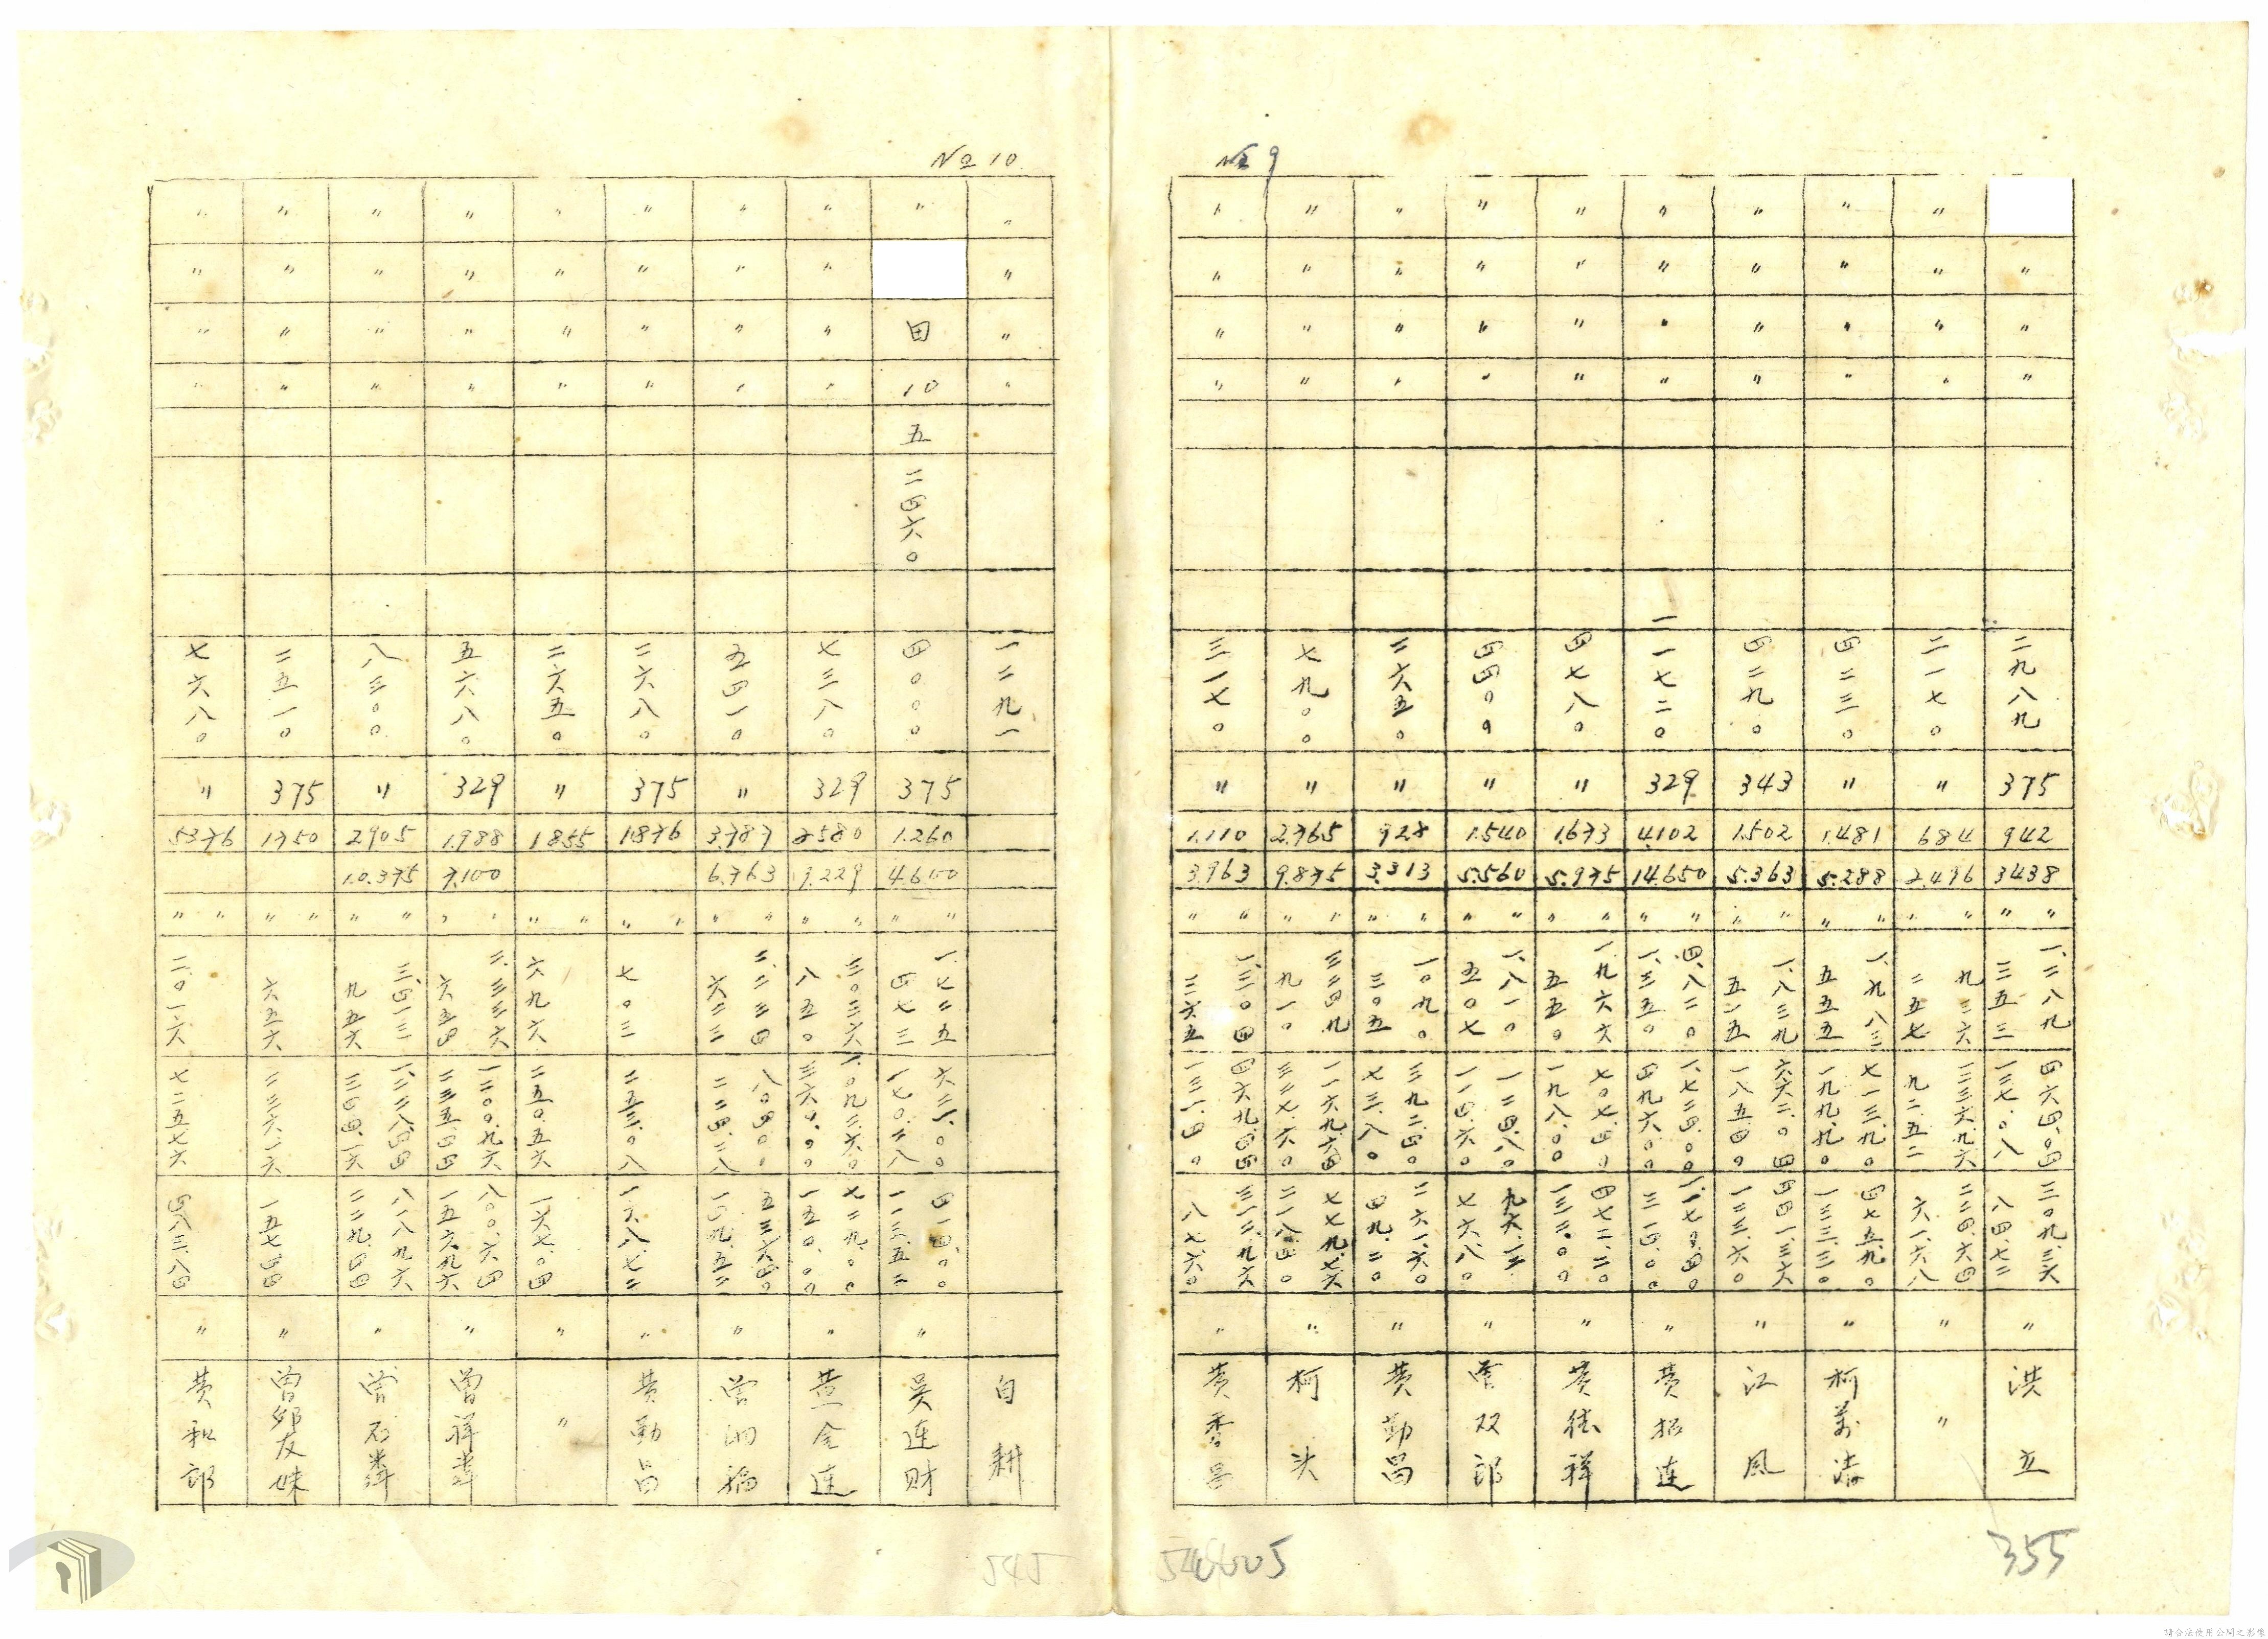 № 9
〃 〃 〃 二九八九 375 942 3438 〃 〃 一、二八九 三五三 四六四.〇四 一二七.〇八 三〇九.三六 八四.七二 〃 洪立
〃 〃 〃 〃 二一七〇 〃 684 2.496 〃 〃 九三六 二五七 三三六.九六 九二.五二 二二四.六四 六一.六八 〃 〃
〃 〃 〃 〃 四二三〇 〃 1.481 5.288 〃 〃 一、九八三 五五五 七一三.九〇 一九九.九〇 四七五.九〇 一三三.三〇 〃 柯萬
〃 〃 〃 〃 四二九〇 343 1.502 5.363 〃 〃 一、八三九 五一五 六六二.〇四 一八五.四〇 四四一.三六 一二三.六〇 〃 江風
〃 〃 〃 〃 一一七二〇 329 4.102 14.650 〃 〃 四、八二〇 一、三五〇 一、七三四.〇〇 四九六.〇〇 一、一七〇.四〇 三一四.〇〇 〃 黄招連
〃 〃 〃 〃 四七八〇 〃 1.673 5.975 〃 〃 一、九六六 五五〇 七〇七.四〇 一九八.〇〇 四七二.二〇 一三二.〇〇 〃 黄継祥
〃 〃 〃 〃 四四〇〇 〃 1.540 5.560 〃 〃 一、八一〇 五〇七 〃 曾双郎
〃 〃 〃 〃 二六五〇 〃 928 3.313 〃 〃 一、〇九〇 三〇五 三九二.四〇 七三.八〇 二六一.六〇 四九.二〇 〃 黄勤昌
〃 〃 〃 〃 七九〇〇 〃 2.765 9.875 〃 〃 三二四九 九一〇 一一六九.六四 三二七.六〇 七七九.七六 二一八.四〇 〃 柯決
〃 〃 〃 〃 三一七〇 〃 1.110 3.963 〃 〃 一、三〇四 三六五 四六九.四四 一三一.四〇 三一二.九六 八七.六〇 〃 黄秀昌
355
№ 10
〃 〃 〃 〃 一二九一 自耕
〃 田 10 五 二四六〇 四〇〇〇 375 1.260 4.600 〃 〃 一、七二五 四七三 六二一.〇〇 一七〇.二八 四一四.〇〇 一一三.五二 〃 吳連財
〃 〃 〃 〃 七三八〇 329 2580 9.229 〃 〃 三〇三六 八五〇 一、〇九二.六〇 三六〇.〇〇 七二九.〇〇 一五〇.〇〇 〃 黄金連
〃 〃 〃 〃 五四一〇 〃 3.787 6.763 〃 〃 二、二三四 六二三 八〇四.〇〇 二二四.二八 五三六.四〇 一四九.五二 〃 曾
〃 〃 〃 〃 二六八〇 375 1.876 〃 〃 七〇三 二五三.〇八 一六八.七二 〃 黄勤昌
〃 〃 〃 〃 二六五〇 〃 1855 〃 〃 六九六 二五〇.五六 一六七.〇四 〃 〃
〃 〃 〃 〃 五六八〇 329 1.988 7.100 〃 〃 二、三三六 六五四 一二〇〇.九六 二三五.四四 八〇〇.六四 一五六.九六 〃 曾祥
〃 〃 〃 〃 八三〇〇 〃 2905 10.375 〃 〃 三、四一三 九五六 一、二二八.四四 三四四.一六 八一八.九六 二二九.四四 〃 曾石
〃 〃 〃 〃 二五一〇 375 1750 〃 〃 六五六 二三六.一六 一五七.四四 〃 曾卯友妹
〃 〃 〃 〃 七六八〇 〃 5376 〃 〃 二、〇一六 七二五.七六 四八三.八四 〃 黄和郎
545
請合法使用公開之影像